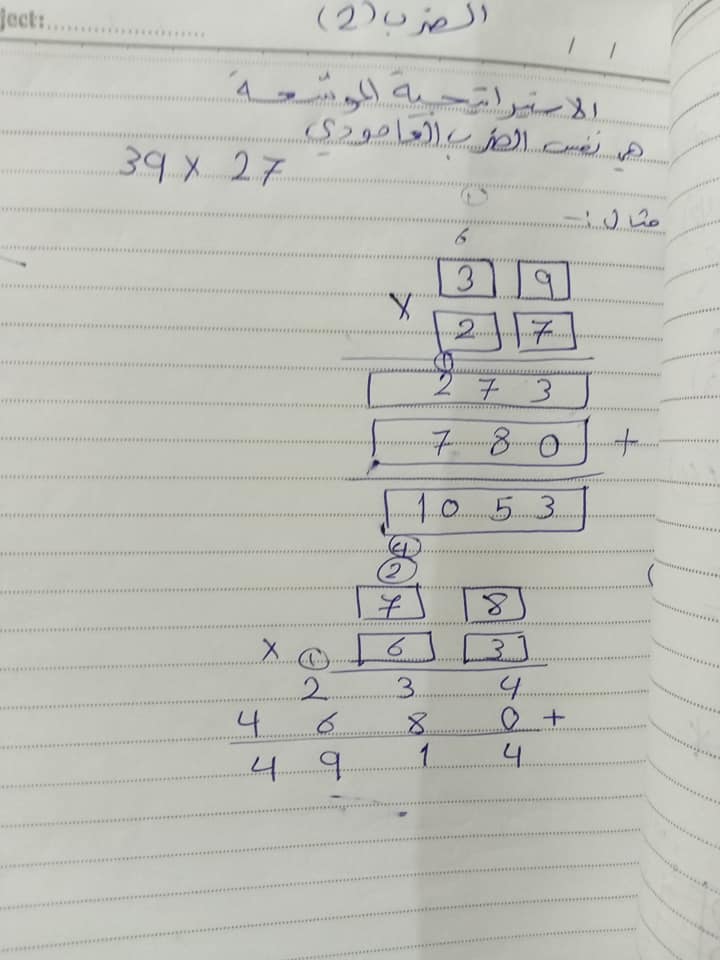 ject:
الضرب (2)
/ /
الاستراتيجية الموسعة
هي نفس الضرب العامودي
39 x 27
مثال :-
1
6
3 9
x 2 7
1
2 7 3
7 8 0 +
1 0 5 3
4
2
7 8
x 6 3
1
2 3 4
4 6 8 0 +
4 9 1 4